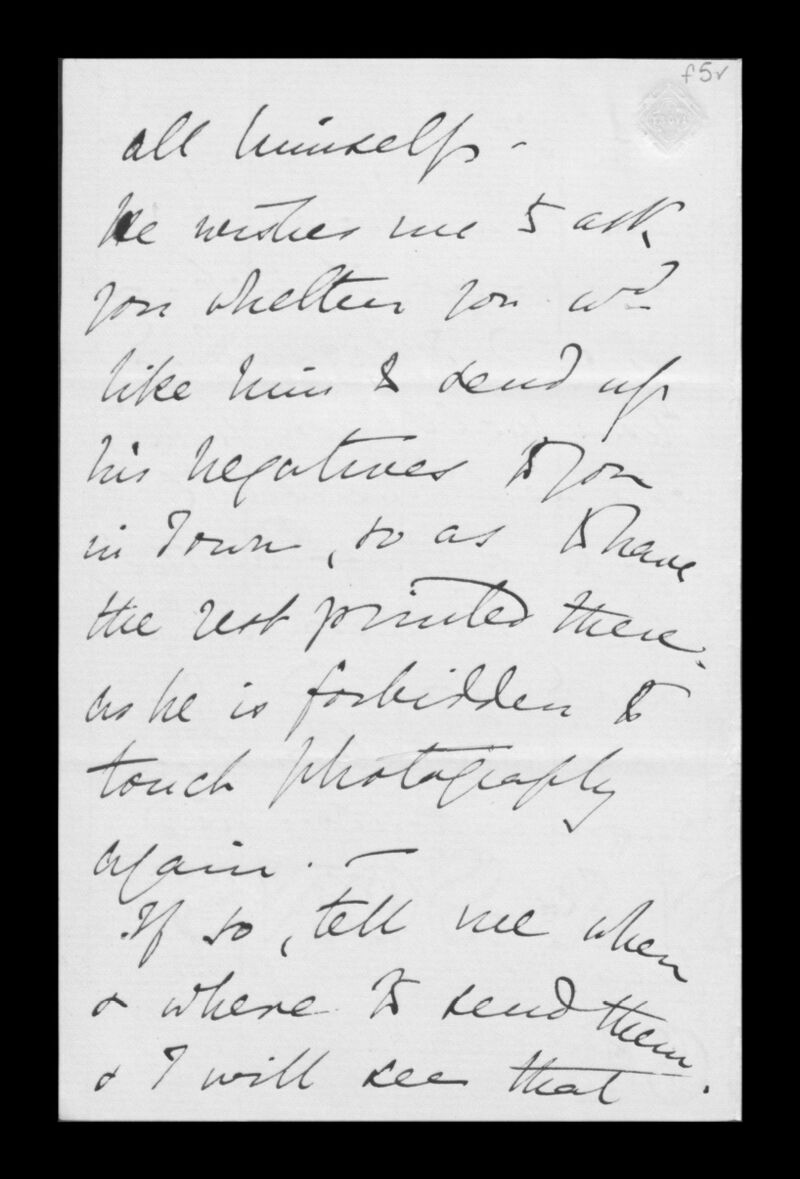 f5v
all himself -
He wishes me to ask
you whether you wd
like him to send up
his negatives to you
in Town, so as to have
the rest printed there.
as he is forbidden to
touch photography
again. —
If so, tell me when
& where to send them
& I will see that